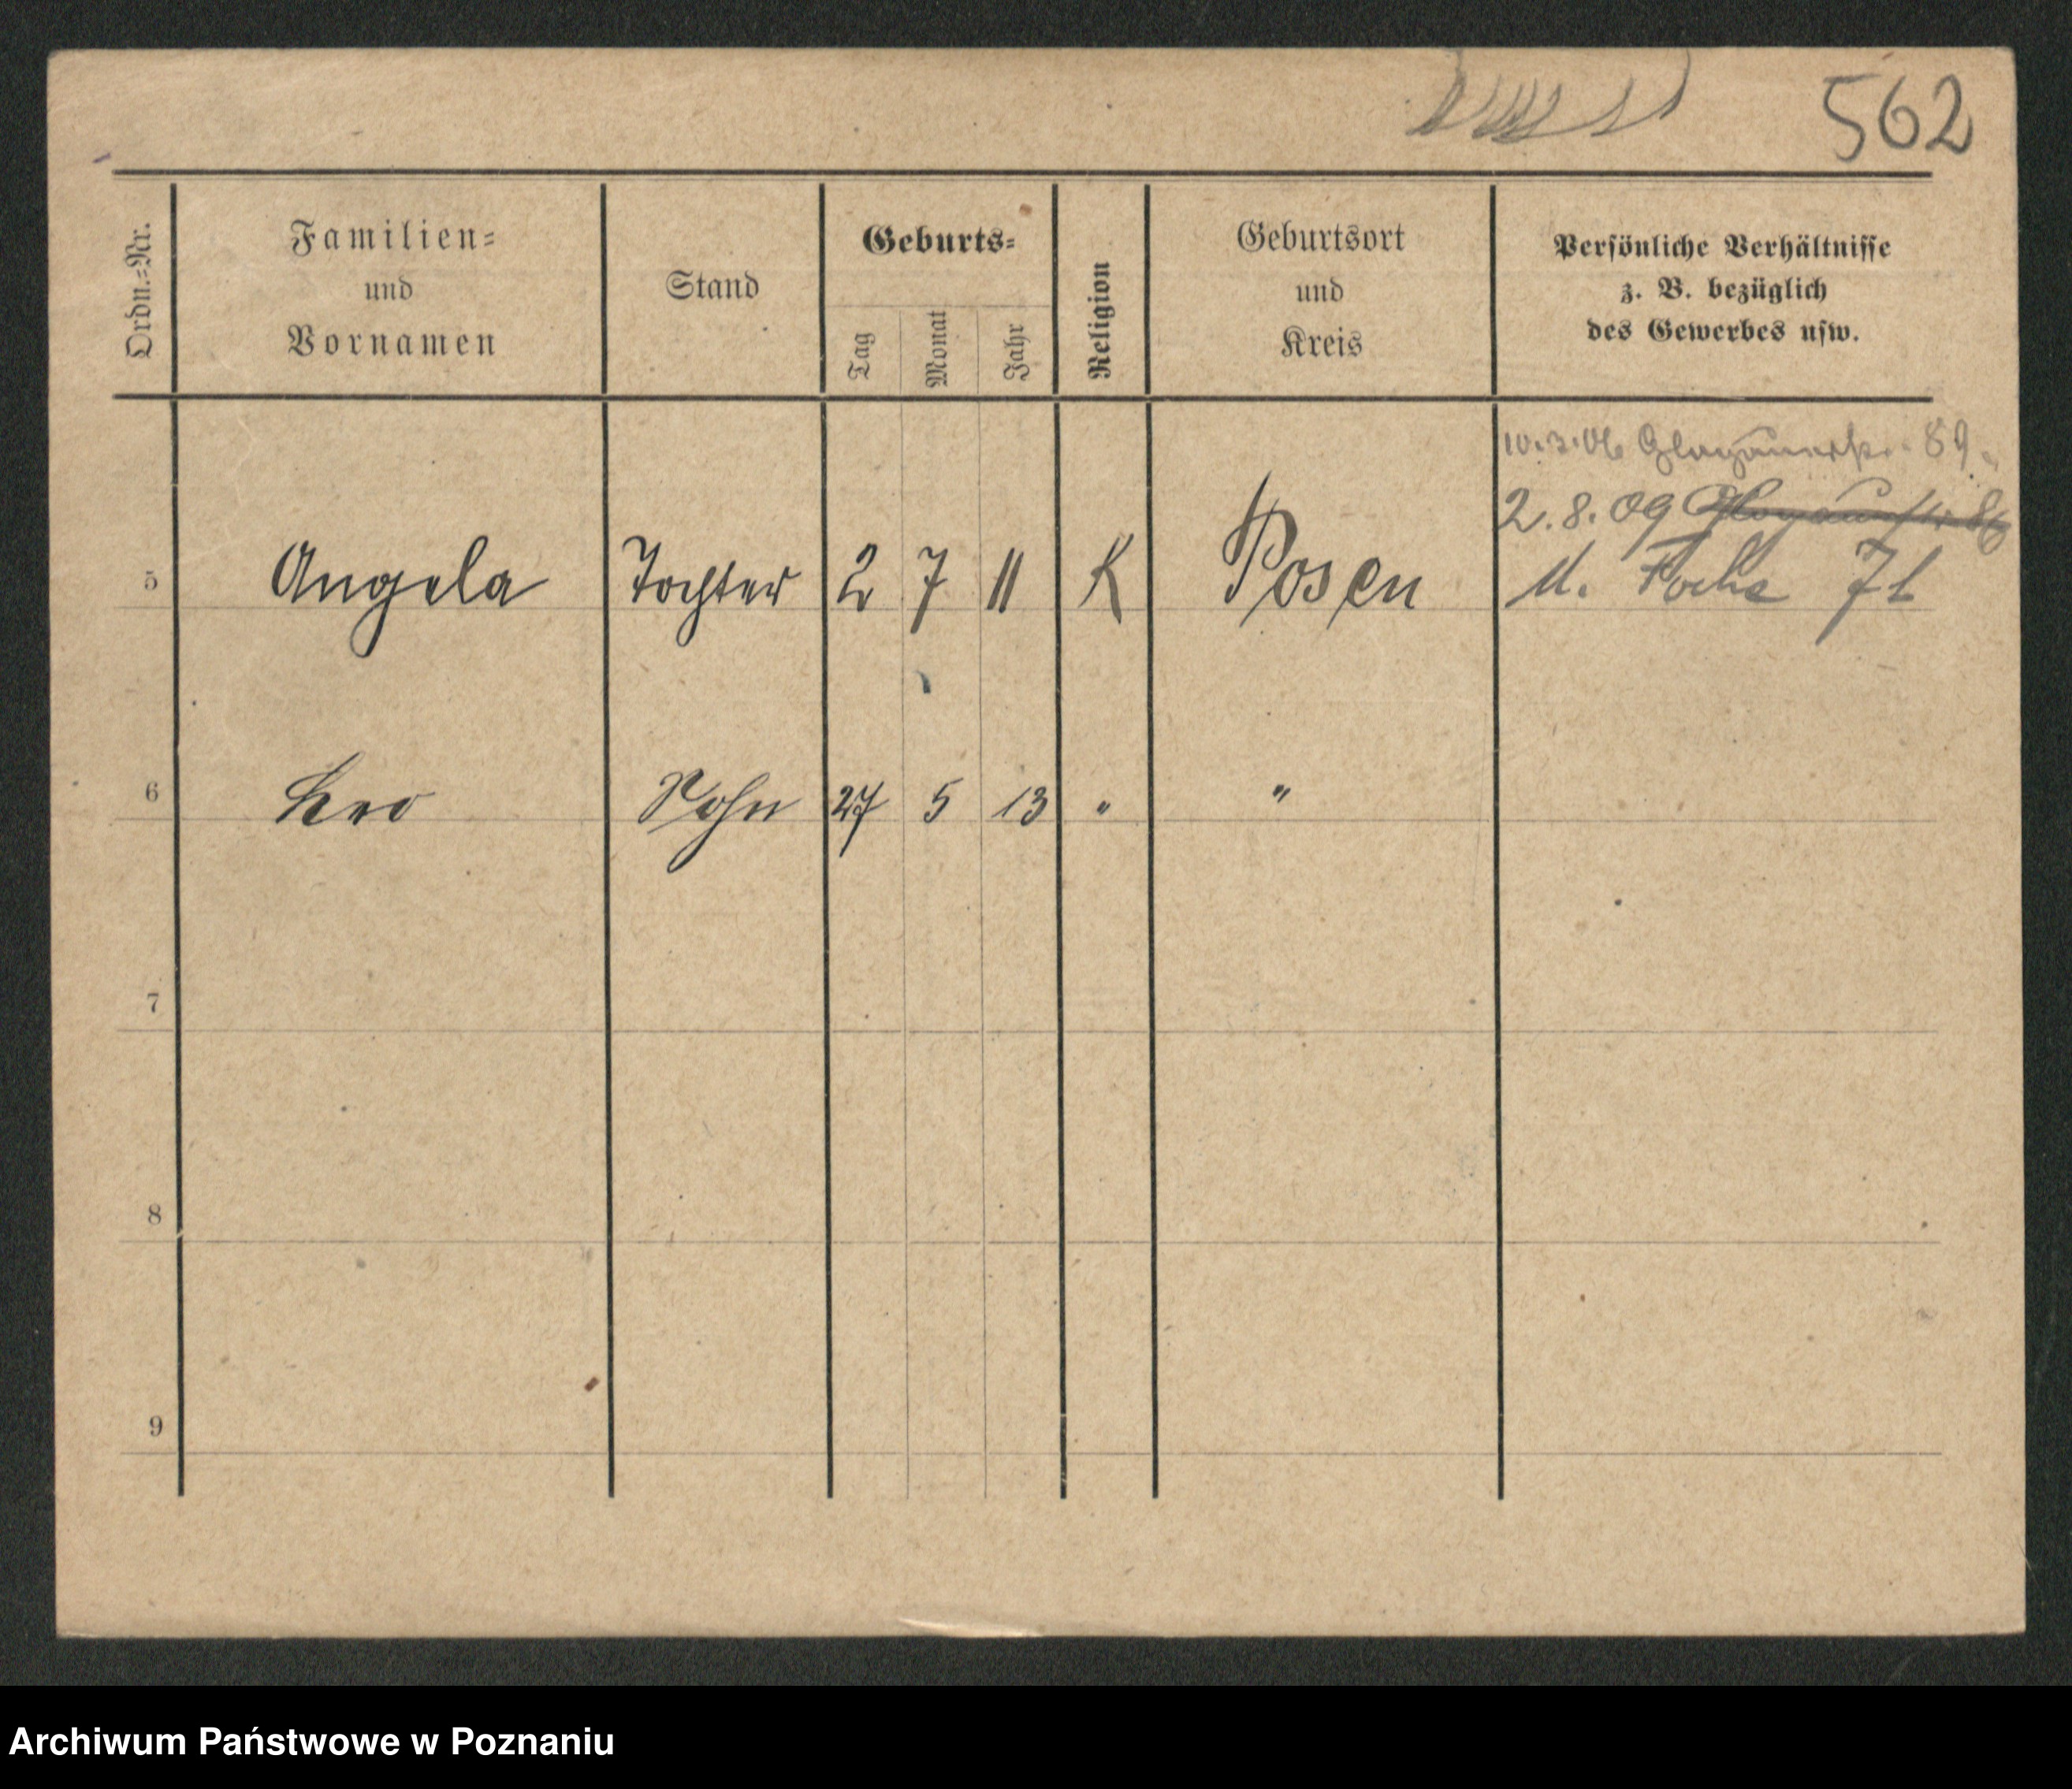 562
Ordn.=Nr.
Familien=
und
Vornamen
Stand
Geburts=
Tag
Monat
Jahr
Religion
Geburtsort
und
Kreis
Persönliche Verhältnisse
z. B. bezüglich
des Gewerbes usw.
10.3.06 Glogauerstr. 89.
2.8.09 Glogauerstr. 86
5 Angela Tochter 2 7 11 K Posen M. Focha 71
6 Leo Sohn 27 5 13 " "
7
8
9
Archiwum Państwowe w Poznaniu